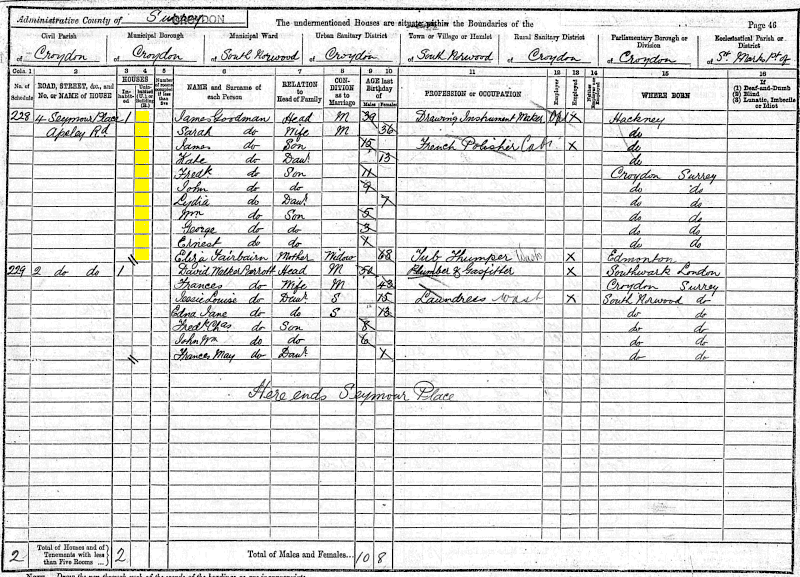 Administrative County of Surrey CROYDON The undermentioned Houses are situate within the Boundaries of the Page 46
Civil Parish Municipal Borough Municipal Ward Urban Sanitary District Town or Village or Hamlet Rural Sanitary District Parliamentary Borough or Division Ecclesiastical Parish or District
of Croydon of Croydon of South Norwood of Croydon of South Norwood of Croydon of Croydon of St. Mark Pt of
Cols. 1 2 3 4 5 6 7 8 9 10 11 12 13 14 15 16
No. of Schedule ROAD, STREET, &c., and No. or NAME of HOUSE HOUSES Inhabited Number of rooms occupied if less than five NAME and Surname of each Person RELATION to Head of Family CONDITION as to Marriage AGE last Birthday of Males Females PROFESSION or OCCUPATION Employer Employed WHERE BORN (1) Deaf-and-Dumb (2) Blind (3) Lunatic, Imbecile or Idiot
228 4 Seymour Place 1 James Goodman Head M 39 Drawing Instrument Maker X Hackney
Apsley Rd Sarah do Wife M 36 do
James do Son 15 French Polisher X do
Kate do Daur 13 do
Fredk do Son 11 Croydon Surrey
John do do 9 do do
Lydia do Daur 7 do do
Wm do Son 5 do do
George do do 3 do do
Ernest do do X do do
Eliza Fairbairn Mother Widow 68 Tub Thumper Wash X Edmonton
229 2 do do 1 David Walker Parrott Head M Plumber & Gasfitter X Southwark London
Frances do Wife M 43 Croydon Surrey
Jessie Louise do Daur S 15 Laundress Wash X South Norwood do
Edna Jane do do S 13 do do
Fredk Chas do Son 8 do do
John Wm do do 6 do do
Frances May do Daur X do do
Here ends Seymour Place
2 Total of Houses and of Tenements with less than Five Rooms 2 Total of Males and Females... 10 8